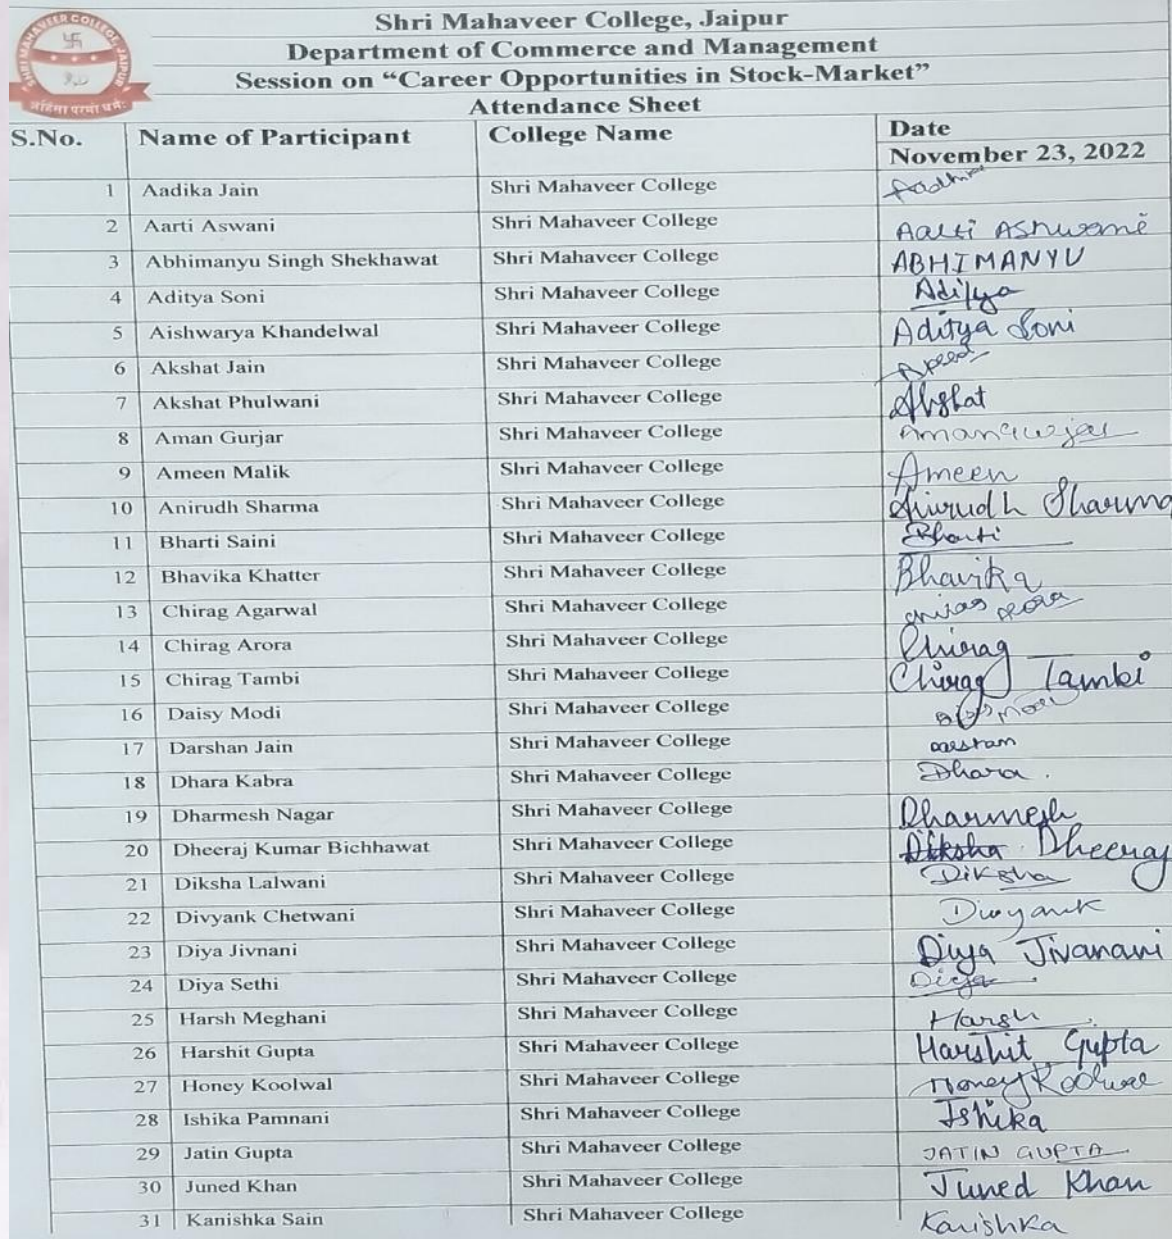 SHRI MAHAVEER COLLEGE, JAIPUR
अहिंसा परमो धर्म:
Shri Mahaveer College, Jaipur
Department of Commerce and Management
Session on “Career Opportunities in Stock-Market”
Attendance Sheet
S.No. Name of Participant College Name Date
November 23, 2022
1 Aadika Jain Shri Mahaveer College
2 Aarti Aswani Shri Mahaveer College Aarti Ashwani
3 Abhimanyu Singh Shekhawat Shri Mahaveer College ABHIMANYU
4 Aditya Soni Shri Mahaveer College Aditya
5 Aishwarya Khandelwal Shri Mahaveer College Aditya Soni
6 Akshat Jain Shri Mahaveer College
7 Akshat Phulwani Shri Mahaveer College Akshat
8 Aman Gurjar Shri Mahaveer College Aman Gurjar
9 Ameen Malik Shri Mahaveer College Ameen
10 Anirudh Sharma Shri Mahaveer College Anirudh Sharma
11 Bharti Saini Shri Mahaveer College Bharti
12 Bhavika Khatter Shri Mahaveer College Bhavika
13 Chirag Agarwal Shri Mahaveer College
14 Chirag Arora Shri Mahaveer College Chirag
15 Chirag Tambi Shri Mahaveer College Chirag Tambi
16 Daisy Modi Shri Mahaveer College
17 Darshan Jain Shri Mahaveer College
18 Dhara Kabra Shri Mahaveer College Dhara.
19 Dharmesh Nagar Shri Mahaveer College Dharmesh
20 Dheeraj Kumar Bichhawat Shri Mahaveer College Diksha Dheeraj
21 Diksha Lalwani Shri Mahaveer College Diksha
22 Divyank Chetwani Shri Mahaveer College Divyank
23 Diya Jivnani Shri Mahaveer College Diya Jivanani
24 Diya Sethi Shri Mahaveer College Diya
25 Harsh Meghani Shri Mahaveer College Harsh
26 Harshit Gupta Shri Mahaveer College Harshit Gupta
27 Honey Koolwal Shri Mahaveer College Honey Koolwal
28 Ishika Pamnani Shri Mahaveer College Ishika
29 Jatin Gupta Shri Mahaveer College JATIN GUPTA
30 Juned Khan Shri Mahaveer College Juned Khan
31 Kanishka Sain Shri Mahaveer College Kanishka